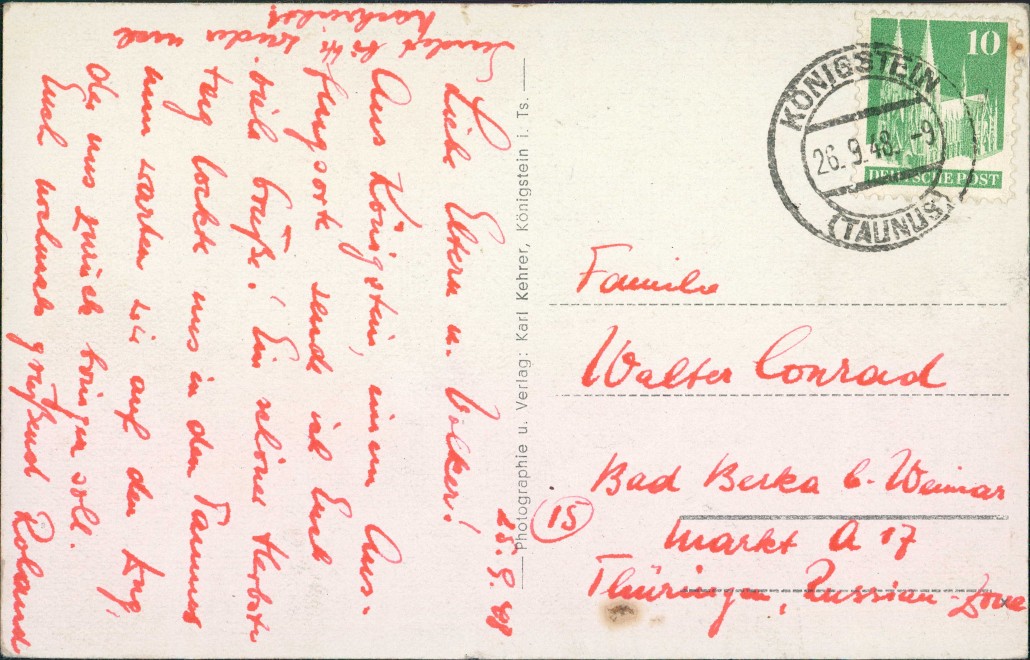 25.9.48
Liebe Eltern u. Volker!
Aus Königstein, einem Aus-
flugsorte sende ich Euch
viele Grüße! Ein schöner Herbst-
tag lockte uns in den Taunus
nun warten wir auf den Zug,
der uns zurück bringen soll.
Euch nochmals grüßend Roland
Sendet bitte und
Photographie u. Verlag: Karl Kehrer, Königstein i. Ts.
10
DEUTSCHE POST
KÖNIGSTEIN
26.9.48.-9
(TAUNUS)
Familie
Walter Conrad
Bad Berka b. Weimar
15
Markt A 17
Thüringen, Russian-Zone